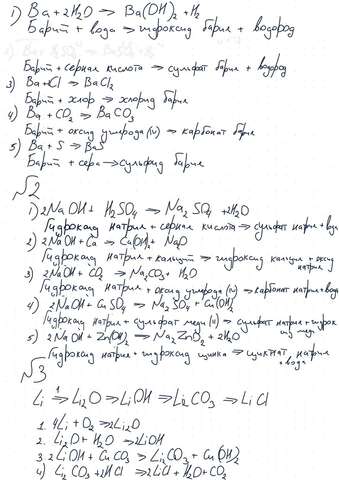 1) Ba + 2H₂O → Ba(OH)₂ + H₂
Барий + вода → гидроксид бария + водород
Барий + серная кислота → сульфат бария + водород
3) Ba + Cl → BaCl₂
Барий + хлор → хлорид бария
4) Ba + CO₂ → BaCO₃
Барий + оксид углерода (IV) → карбонат бария
5) Ba + S → BaS
Барий + сера → сульфид бария
√2
1) 2NaOH + H₂SO₄ → Na₂SO₄ + 2H₂O
Гидроксид натрия + серная кислота → сульфат натрия + вода
2) 2NaOH + Ca → Ca(OH)₂ + NaO
Гидроксид натрия + кальций → гидроксид кальция + оксид натрия
3) 2NaOH + CO₂ → Na₂CO₃ + H₂O
Гидроксид натрия + оксид углерода (IV) → карбонат натрия + вода
4) 2NaOH + CuSO₄ → Na₂SO₄ + Cu(OH)₂
Гидроксид натрия + сульфат меди (II) → сульфат натрия + гидрок
5) 2NaOH + Zn(OH)₂ → Na₂ZnO₂ + 2H₂O
Гидроксид натрия + гидроксид цинка → цинкат натрия + вода
√3
Li →¹ Li₂O → LiOH → Li₂CO₃ → LiCl
1. 4Li + O₂ → 2Li₂O
2. Li₂O + H₂O → 2LiOH
3. 2LiOH + CuCO₃ → Li₂CO₃ + Cu(OH)₂
4) Li₂CO₃ + 2HCl → 2LiCl + H₂O + CO₂